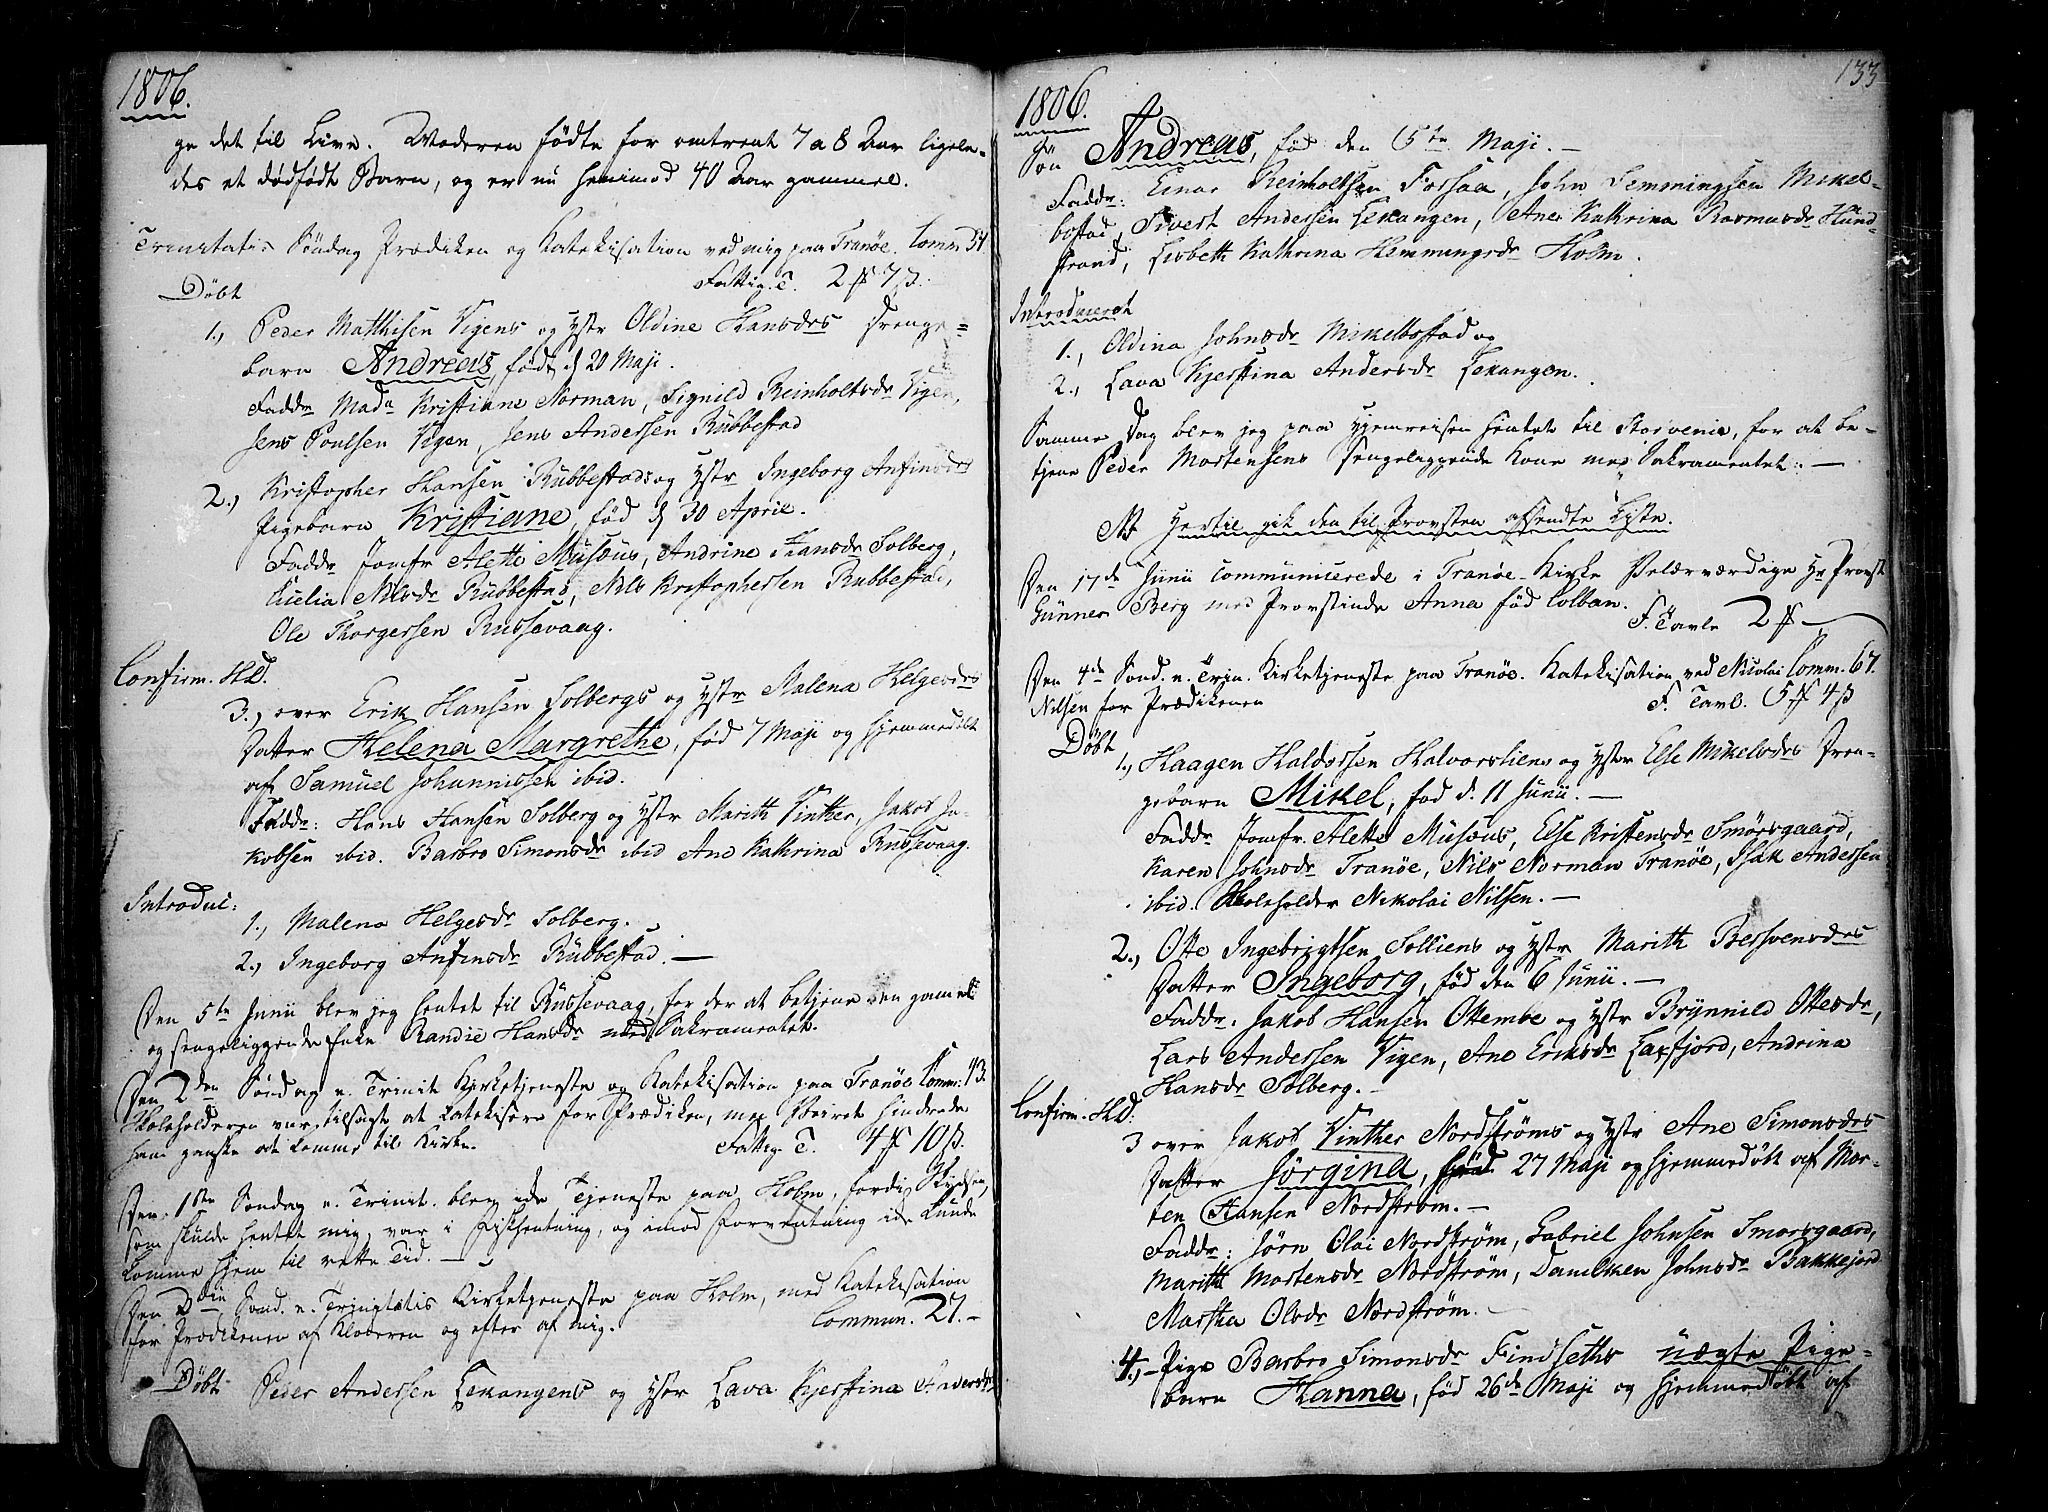 1806.
ge det til Live. Moderen fødte for omtrent 7 a 8 Aar ligele-
des et dødfødt Barn, og er nu henimod 40 Aar gammel.
Trinitatis Søndag Prædiken og Katekisation ved mig paa Tranøe. Comm. 54
Fattig. T. 2 # 7 ß.
Døbt
1., Peder Matthisen Vigens og Hstr Oldine Hansdrs Drenge-
barn Andreas, født d 20 Maji.
Faddr Mada Kristiane Norman, Signild Reinholtsdr Vigen,
Jens Poulsen Vigen, Jens Andersen Rübbestad
2., Kristopher Hansen Rübbestads og Hstr Ingeborg Anfinsdrs
Pigebarn Kristiane, fød d 30 April.
Faddr Jomfr Alette Musæus, Andrine Hansdr Solberg,
Cicelia Nilsdr Rübbestad, Nils Kristophersen Rubbestad,
Ole Thorgersen Russevaag.
Confirm. H.D.
3., over Erik Hansen Solbergs og Hstr Malena Helgesdrs
Datter Helena Margrethe, fød 7 Maji og hjemmedøbt
af Samuel Johannissen ibid.
Faddr: Hans Hansen Solberg og Hstr Marith Vinther, Jakob Ja-
kobsen ibid. Barbro Simonsdr ibid Ane Kathrina Russevaag.
Introduc:
1., Malena Helgesdr Solberg.
2., Ingeborg Anfinsdr Rübbestad. —
Den 5te Junii blev jeg hentet til Russevaag, for der at betjene den gamel
og sengeliggende Enke Randie Hansdr med Sakramentet.
Den 2den Søndag n. Trinit Kirketjeneste og Katekisation paa Tranøe Comm: 43.
Skoleholderen var tilsagt at katekisere for Prædiken, men Veiret hindrede
ham ganske at komme til Kirke. Fattig. T. 4 # 10 ß.
Den 1ste Søndag n. Trinit. blev ide Tjeneste paa Holm, fordi Skydsen,
som skulde hentet mig, var i Fiskhentning, og imod Forventning ide kunde
komme hjem til rette Tid. —
Den 3die Sønd. n. Trinitatis Kirketjeneste paa Holm, med Katekisation
for Prædikenen af Klokeren og efter af mig. Commun. 27. –
Døbt Peder Andersen Lekangens og Hstr Lava Kjerstina Andersdrs
133
1806.
Søn Andreas, fød den 15te Maji. —
Faddr: Einar Reinholtsen Forsaa, John Hemmingsen Mikel-
bostad, Sivert Andersen Lekangen, Ane Kathrina Rasmusdr Hund-
strand, Lisbeth Kathrina Hemmingsdr Holm.
Introduceret
1., Oldina Johnsdr Mikelbostad og
2., Lava Kjerstina Andersdr Lekangen.
Samme Dag blev jeg paa Hjemreisen hentet til Storvenie, for at be-
tjene Peder Mortensens sengeliggende Kone med Sakramentet. —
NB Hertil gik den til Provsten afsendte Liste.
Den 17de Junii communicerede i Tranøe-Kirke Velærværdige Hr Provst
Günner Berg med Provstinde Anna fød Colban.
F. Tavle 2 # —
Den 4de Sønd. n. Trin. Kirketjeneste paa Tranøe. Katekisation ved Nicolai Comm. 67.
Nilsen for Prædikenen F. Tavl. 5 # 4 ß
Døbt
1., Haagen Haldorsen Halvorsliens og Hstr Else Mikelsdrs Dren-
gebarn Mikel, fød d. 11 Junii. —
Faddr Jomfr. Alette Musæus, Else Kristensdr Smørsgaard,
Karen Johnsdr Tranøe, Nils Norman Tranøe, Isak Andersen
ibid. Skoleholder Nikolai Nilsen. —
2., Otte Ingebrigtsen Solliens og Hstr Marith Bersvensdrs
Datter Ingeborg, fød den 6 Junii. —
Faddr. Jakob Hansen Ottembe og Hstr Brynnild Ottesdr,
Lars Andersen Vigen, Ane Eriksdr Laxfjord, Andrina
Hansdr Solberg. –
Confirm. H.D.
3 over Jakob Vinther Nordstrøms og Hstr Ane Simonsdrs
Datter Jørgina, fød 27 Maji og hjemmedøbt af Mor-
ten Hansen Nordstrøm. —
Faddr: Jørn Olai Nordstrøm, Gabriel Johnsen Smorsgaard,
Marith Mortensdr Nordstrøm, Danilken Johnsdr Bakkejord
Martha Olsdr Nordstrøm. –
4., – Pige Barbro Simonsdr Findseths uægte Pige-
barn Hanna, fød 26de Maji og hjemmedøbt af